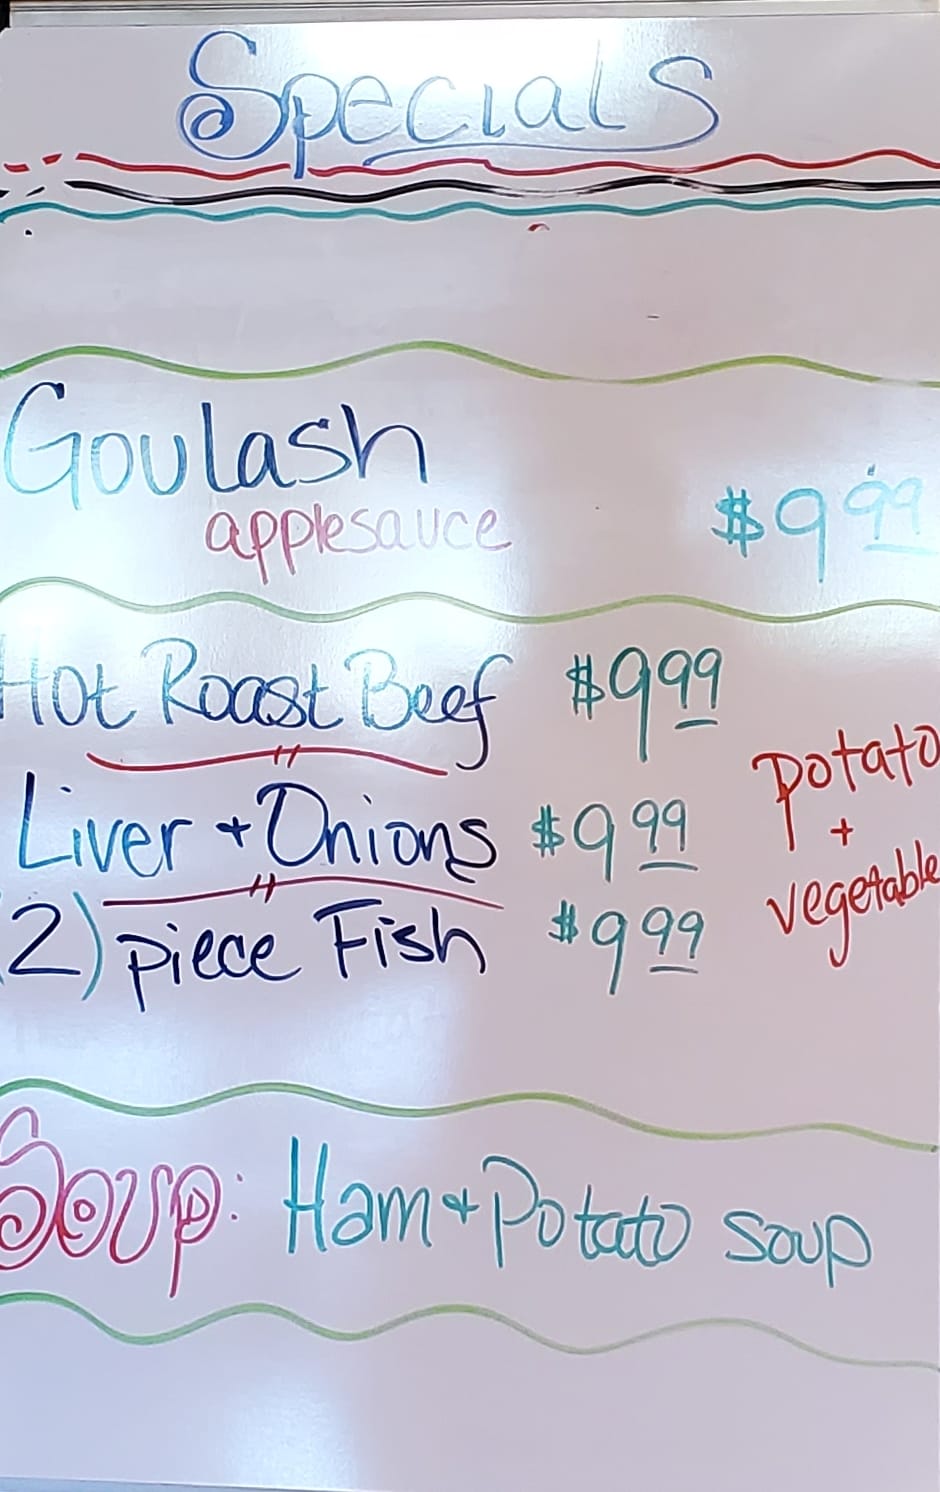 Specials
Goulash
applesauce $9.99
Hot Roast Beef $9 99
Liver + Onions $9 99
(2) piece Fish $9 99
potato
+
vegetable
Soup: Ham + Potato soup